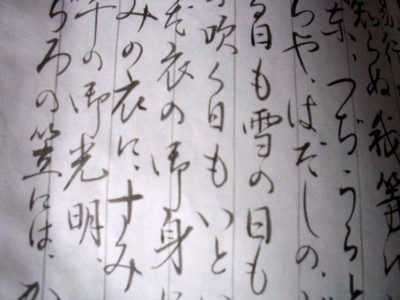 知らぬ我等
つぢ、うら
ちや、はだしの、
る日も雪の日も
吹く日もいと
衣の御身に
みの衣に、すみ
の御光明、
ろの笠には、か